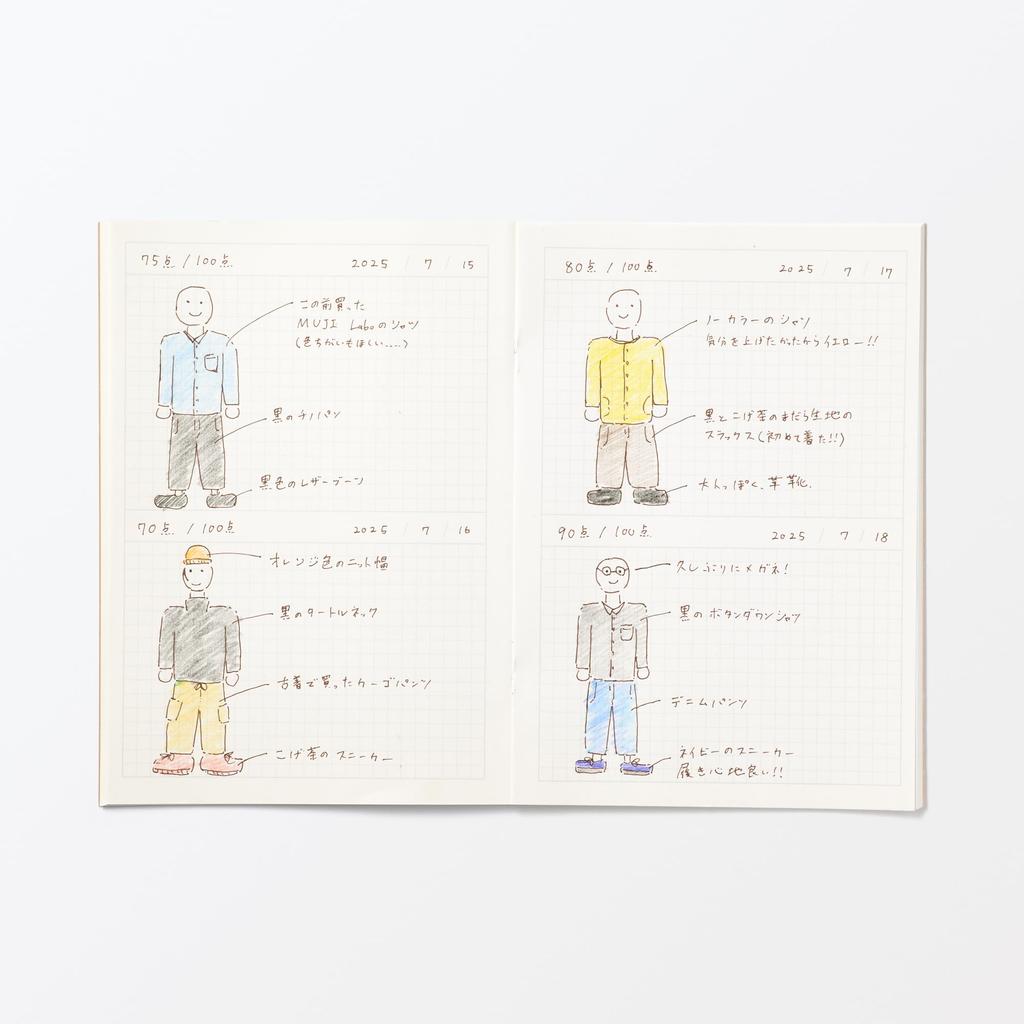 75点 / 100点
2025 / 7 / 15
この前買った
MUJI Laboのシャツ
(色ちがいもほしい.....)
黒のチノパン
黒色のレザーブーツ
70点 / 100点
2025 / 7 / 16
オレンジ色のニット帽
黒のタートルネック
古着で買ったカーゴパンツ
こげ茶のスニーカー
80点 / 100点
2025 / 7 / 17
ノーカラーのシャツ
気分を上げたかったからイエロー!!
黒とこげ茶のまだら生地の
スラックス(初めて着た!!)
大人っぽく、革靴。
90点 / 100点
2025 / 7 / 18
久しぶりにメガネ!
黒のボタンダウンシャツ
デニムパンツ
ネイビーのスニーカー
履き心地良い!!